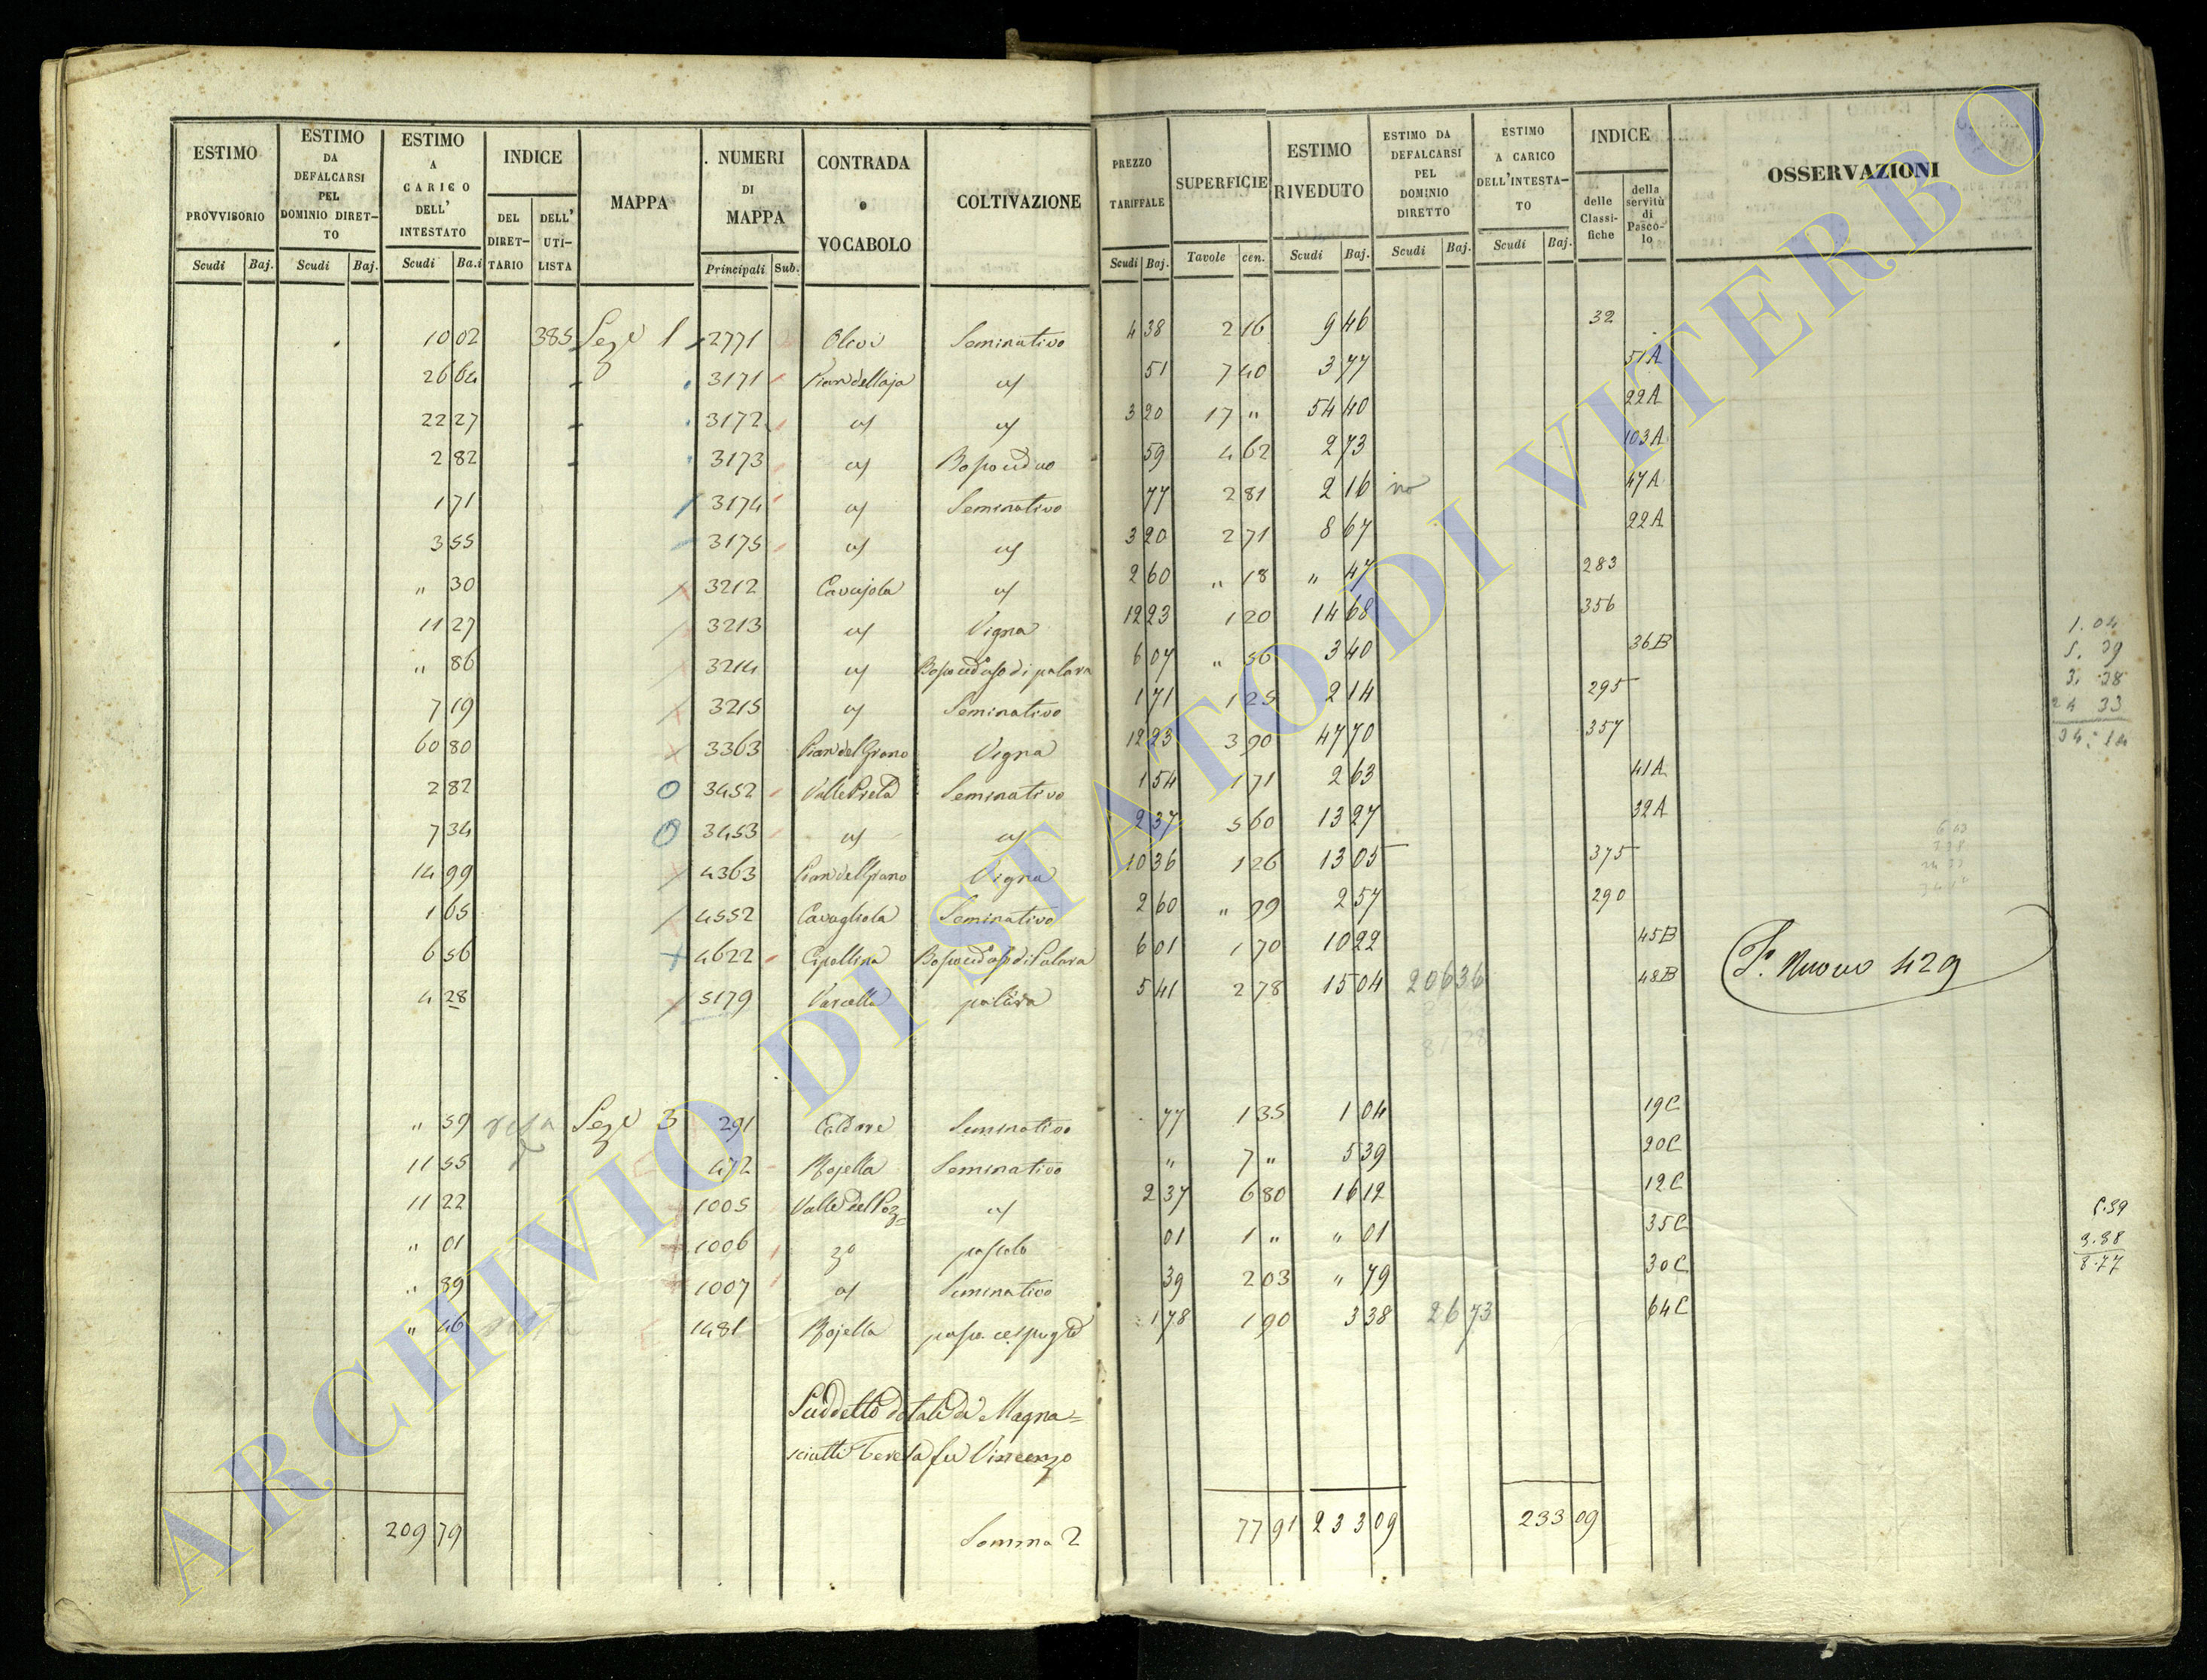 ESTIMO PROVVISORIO Scudi Baj.
ESTIMO DA DEFALCARSI PEL DOMINIO DIRETTO Scudi Baj.
ESTIMO A CARICO DELL' INTESTATO Scudi Ba.i
INDICE DEL DIRETTARIO DELL' UTILISTA
MAPPA
NUMERI DI MAPPA Principali Sub.
CONTRADA o VOCABOLO
COLTIVAZIONE
PREZZO TARIFFALE Scudi Baj.
SUPERFICIE Tavole cen.
ESTIMO RIVEDUTO Scudi Baj.
ESTIMO DA DEFALCARSI PEL DOMINIO DIRETTO Scudi Baj.
ESTIMO A CARICO DELL'INTESTATO Scudi Baj.
INDICE delle Classifiche della servitù di Pascolo
OSSERVAZIONI
10 02 385 Sez.e 1 2771 Olivi Seminativo 4 38 2 16 9 46 32
26 64 3171 Pian dell'aja a/ 51 7 40 3 77 51A
22 27 3172 a/ a/ 3 20 17 " 54 40 22A
2 82 3173 a/ 59 4 62 2 73 103A
1 71 3174 a/ Seminativo 77 2 81 2 16 no 47A
3 55 3175 a/ a/ 3 20 2 71 8 67 22A
" 30 3212 Cavajola a/ 2 60 " 18 " 47 283
11 27 3213 a/ Vigna 12 23 1 20 14 68 356
" 86 3214 a/ di palara 6 07 " 56 3 40 36B
7 19 3215 a/ Seminativo 1 71 1 25 2 14 295
60 80 3363 Pian del Grano Vigna 12 23 3 90 47 70 357
2 82 3452 Valle Pieta Seminativo 1 54 1 71 2 63 41A
7 34 3453 a/ a/ 2 37 5 60 13 27 32A
14 99 4363 Pian del Grano Vigna 10 36 1 26 13 05 375
1 65 4552 Cavagliola Seminativo 2 60 " 99 2 57 290
6 56 4622 Cipollina di Palara 6 01 1 70 10 22 45B
4 28 5179 Varcella palara 5 41 2 78 15 04 206 36 48B
P. Nuovo 429
" 59 resta Sez.e 3 291 Caldare Seminativo 77 1 35 1 04 19C
11 55 472 Rojella Seminativo " 7 " 5 39 20C
11 22 1005 Valle del Poz= a/ 2 37 6 80 16 12 12C
" 01 1006 zo pascolo 01 1 " " 01 35C
" 89 1007 a/ Seminativo 39 2 03 " 79 30C
" 46 1481 Rojella pasc. cespugto 1 78 1 90 3 38 26 73 64C
Suddetto dotali di Magna=
sciutti Teresa fu Vincenzo
209 79 Somma 2 77 91 233 09 233 09
1.04
5. 39
3. 38
24 33
34. 14
5.39
3.38
8.77
ARCHIVIO DI STATO DI VITERBO